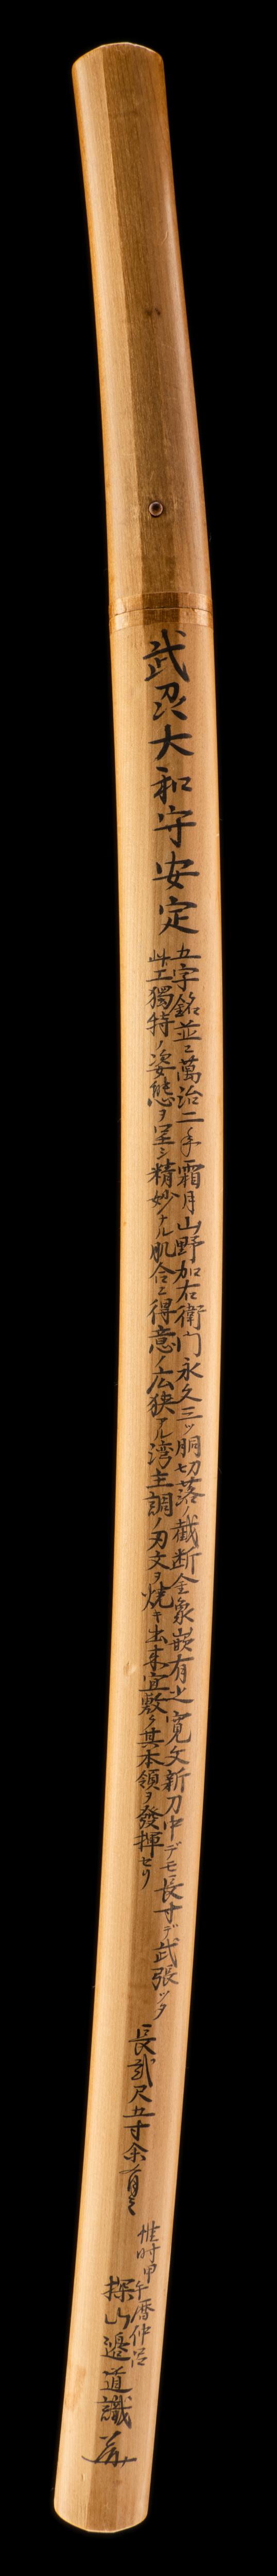 武州大和守安定
五字銘並ニ萬治二年霜月山野加右衛門永久三ツ胴切落ノ截断金象嵌有之寛文新刀中デモ長寸デ武張ッタ
此工獨特ノ姿態ヲ呈シ精妙ナル肌合ニ得意ノ広狭アル湾主調ノ刃文ヲ焼キ出来宜敷ク其本領ヲ發揮セリ
長弐尺五寸余有之
惟时甲午暦仲呂
探山邉道識